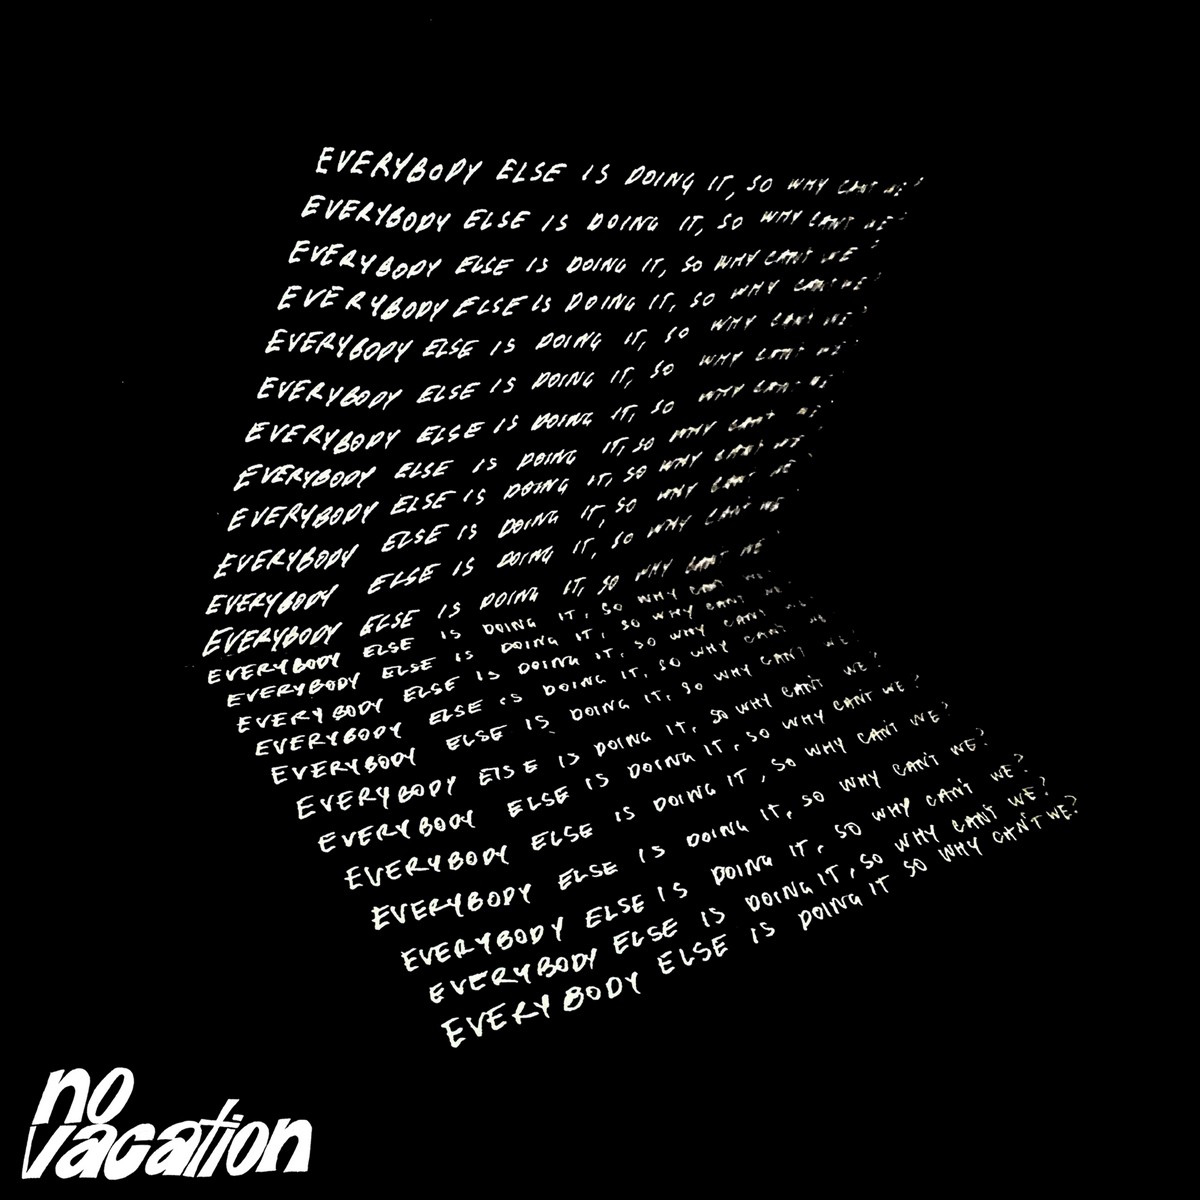 EVERYBODY ELSE IS DOING IT, SO WHY CAN'T WE?
EVERYBODY ELSE IS DOING IT, SO WHY CAN'T WE?
EVERYBODY ELSE IS DOING IT, SO WHY CAN'T WE?
EVERYBODY ELSE IS DOING IT, SO WHY CAN'T WE?
EVERYBODY ELSE IS DOING IT, SO WHY CAN'T WE?
EVERYBODY ELSE IS DOING IT, SO WHY CAN'T WE?
EVERYBODY ELSE IS DOING IT, SO WHY CAN'T WE?
EVERYBODY ELSE IS DOING IT, SO WHY CAN'T WE?
EVERYBODY ELSE IS DOING IT, SO WHY CAN'T WE?
EVERYBODY ELSE IS DOING IT, SO WHY CAN'T WE?
EVERYBODY ELSE IS DOING IT, SO WHY CAN'T WE
EVERYBODY ELSE IS DOING IT, SO WHY CAN'T WE
EVERYBODY ELSE IS DOING IT, SO WHY CAN'T WE
EVERYBODY ELSE IS DOING IT, SO WHY CAN'T WE
EVERYBODY ELSE IS DOING IT, SO WHY CAN'T WE
EVERYBODY ELSE IS DOING IT, SO WHY CAN'T WE
EVERYBODY ELSE IS DOING IT, SO WHY CAN'T WE?
EVERYBODY ELSE IS DOING IT, SO WHY CAN'T WE?
EVERYBODY ELSE IS DOING IT, SO WHY CAN'T WE?
EVERYBODY ELSE IS DOING IT, SO WHY CAN'T WE?
EVERYBODY ELSE IS DOING IT, SO WHY CAN'T WE?
EVERYBODY ELSE IS DOING IT, SO WHY CAN'T WE?
EVERYBODY ELSE IS DOING IT, SO WHY CAN'T WE?
EVERYBODY ELSE IS DOING IT SO WHY CAN'T WE?
no
vacation